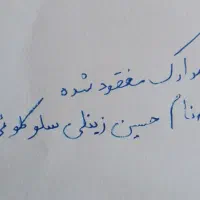 مدارک مفقود شده
بنام حسین زینلی سلوکلوئی